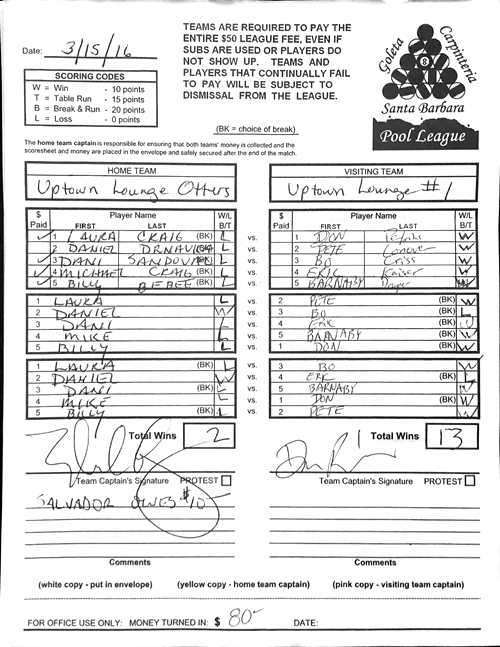 TEAMS ARE REQUIRED TO PAY THE
ENTIRE $50 LEAGUE FEE, EVEN IF
SUBS ARE USED OR PLAYERS DO
NOT SHOW UP. TEAMS AND
PLAYERS THAT CONTINUALLY FAIL
TO PAY WILL BE SUBJECT TO
DISMISSAL FROM THE LEAGUE.
Date: 3/15/16
SCORING CODES
W = Win - 10 points
T = Table Run - 15 points
B = Break & Run - 20 points
L = Loss - 0 points
(BK = choice of break)
Goleta
Carpinteria
8
Santa Barbara
Pool League
The home team captain is responsible for ensuring that both teams' money is collected and the
scoresheet and money are placed in the envelope and safely secured after the end of the match.
HOME TEAM VISITING TEAM
Uptown Lounge Otters Uptown Lounge #1
$ Paid Player Name FIRST LAST W/L B/T $ Paid Player Name FIRST LAST W/L B/T
1 LAURA CRAIG (BK) L vs. 1 DON W
2 DANIEL L vs. 2 PETE Conover W
3 DANI SANDOVAL (BK) L vs. 3 BO Criss W
4 MICHAEL CRAIG (BK) L vs. 4 ERIC Kaiser W
5 BILLY BEBEE (BK) L vs. 5 BARNABY W
1 LAURA L vs. 2 PETE (BK) W
2 DANIEL W vs. 3 BO (BK) L
3 DANI L vs. 4 ERIC (BK) W
4 MIKE L vs. 5 BARNABY (BK) W
5 BILLY L vs. 1 DON (BK) W
1 LAURA (BK) L vs. 3 BO W
2 DANIEL W vs. 4 ERIC (BK) L
3 DANI (BK) L vs. 5 BARNABY W
4 MIKE L vs. 1 DON (BK) W
5 BILLY (BK) L vs. 2 PETE W
Total Wins 2 Total Wins 13
Team Captain's Signature PROTEST Team Captain's Signature PROTEST
SALVADOR OWES $10
Comments Comments
(white copy - put in envelope) (yellow copy - home team captain) (pink copy - visiting team captain)
FOR OFFICE USE ONLY: MONEY TURNED IN: $ 80- DATE: